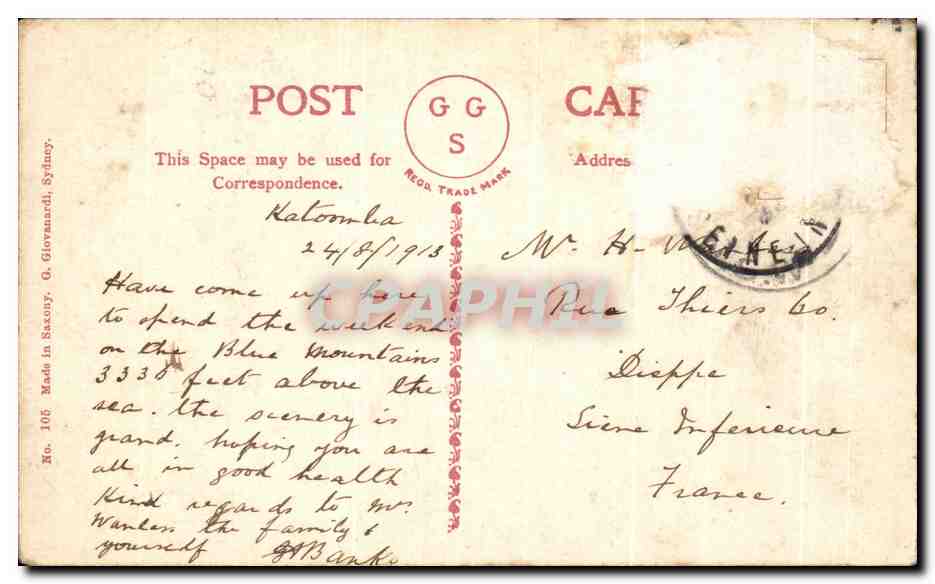 POST CAR
G G
S
REGD. TRADE MARK
This Space may be used for
Correspondence.
Addres
No. 105 Made in Saxony. G. Giovanardi, Sydney.
Katoomba
24/8/1913
Have come up here
to spend the week end
on the Blue Mountains
3336 feet above the
sea. the scenery is
grand. hoping you are
all in good health
Kind regards to Mrs
Wanless the family &
yourself Banks
Mr. H.
Rue Thiers 60.
Dieppe
Siene Inferieure
France.
CPAPHIL